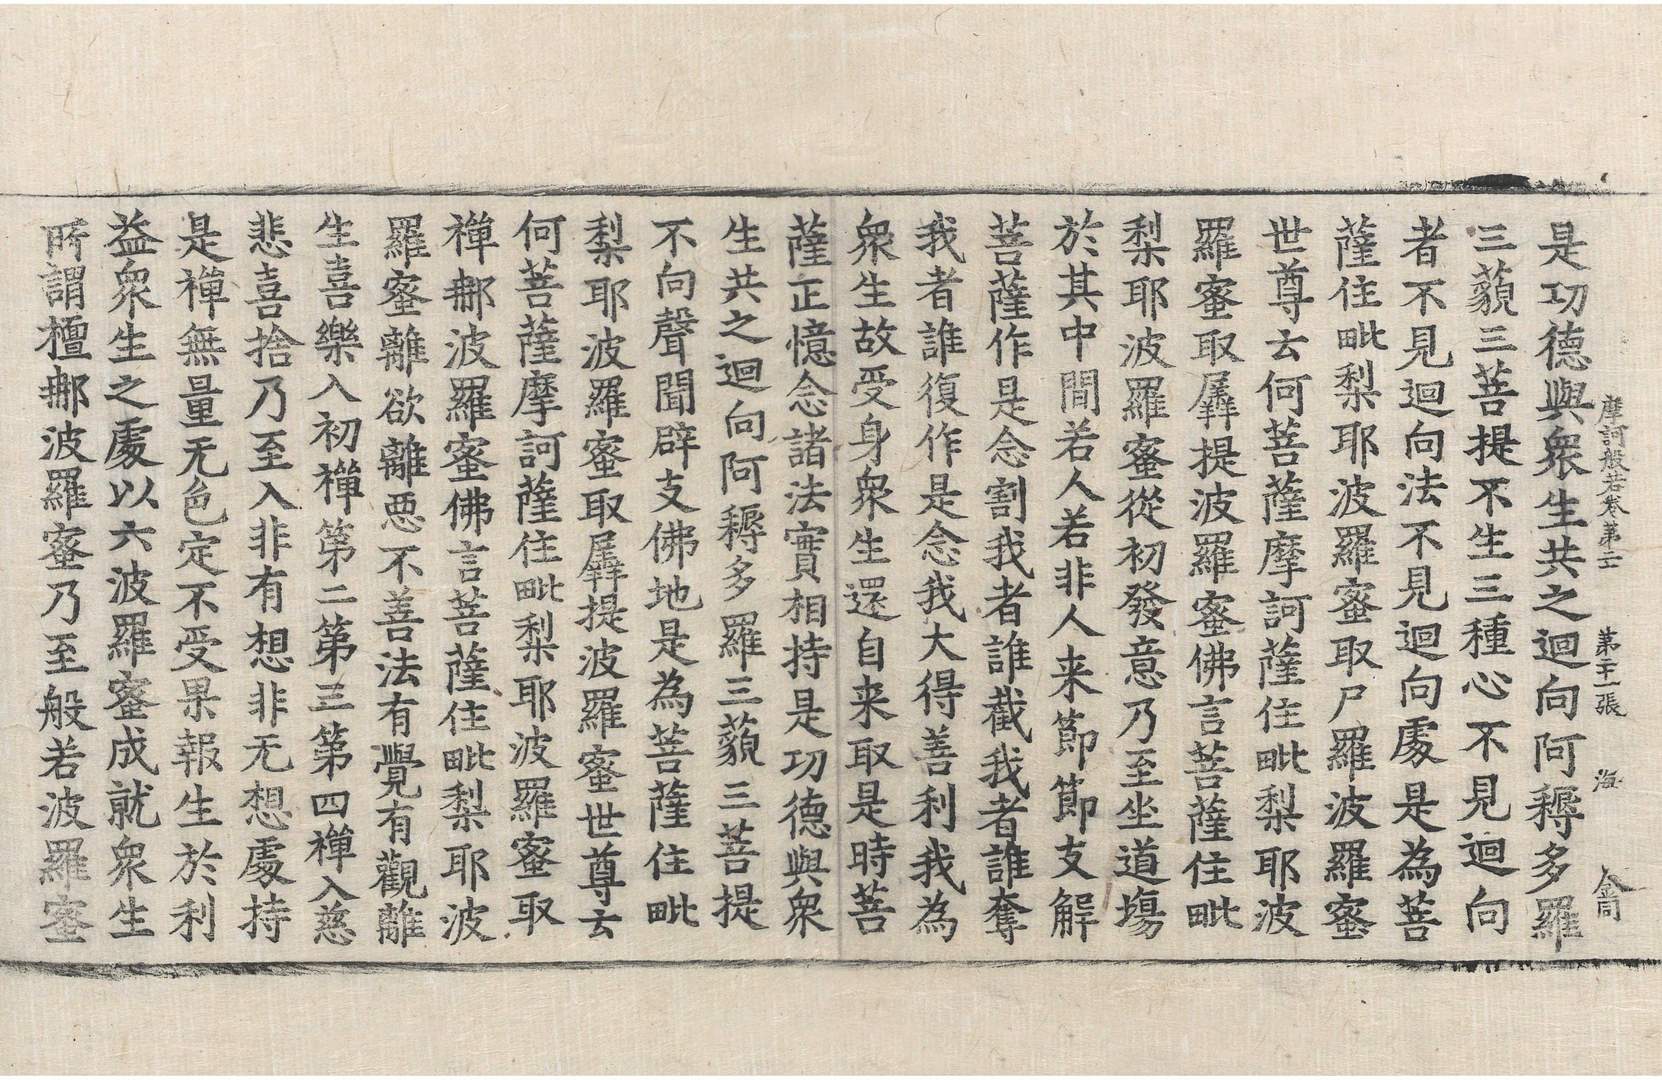 摩訶般若卷第二十 第二十一張 海 金同
是功德與衆生共之迴向阿耨多羅
三藐三菩提不生三種心不見迴向
者不見迴向法不見迴向處是為菩
薩住毗梨耶波羅蜜取尸羅波羅蜜
世尊云何菩薩摩訶薩住毗梨耶波
羅蜜取羼提波羅蜜佛言菩薩住毗
梨耶波羅蜜從初發意乃至坐道場
於其中間若人若非人来節節支解
菩薩作是念割我者誰截我者誰奪
我者誰復作是念我大得善利我為
衆生故受身衆生還自来取是時菩
薩正憶念諸法實相持是功德與衆
生共之迴向阿耨多羅三藐三菩提
不向聲聞辟支佛地是為菩薩住毗
梨耶波羅蜜取羼提波羅蜜世尊云
何菩薩摩訶薩住毗梨耶波羅蜜取
禪那波羅蜜佛言菩薩住毗梨耶波
羅蜜離欲離惡不善法有覺有觀離
生喜樂入初禪第二第三第四禪入慈
悲喜捨乃至入非有想非无想處持
是禪無量无色定不受果報生於利
益衆生之處以六波羅蜜成就衆生
所謂檀那波羅蜜乃至般若波羅蜜